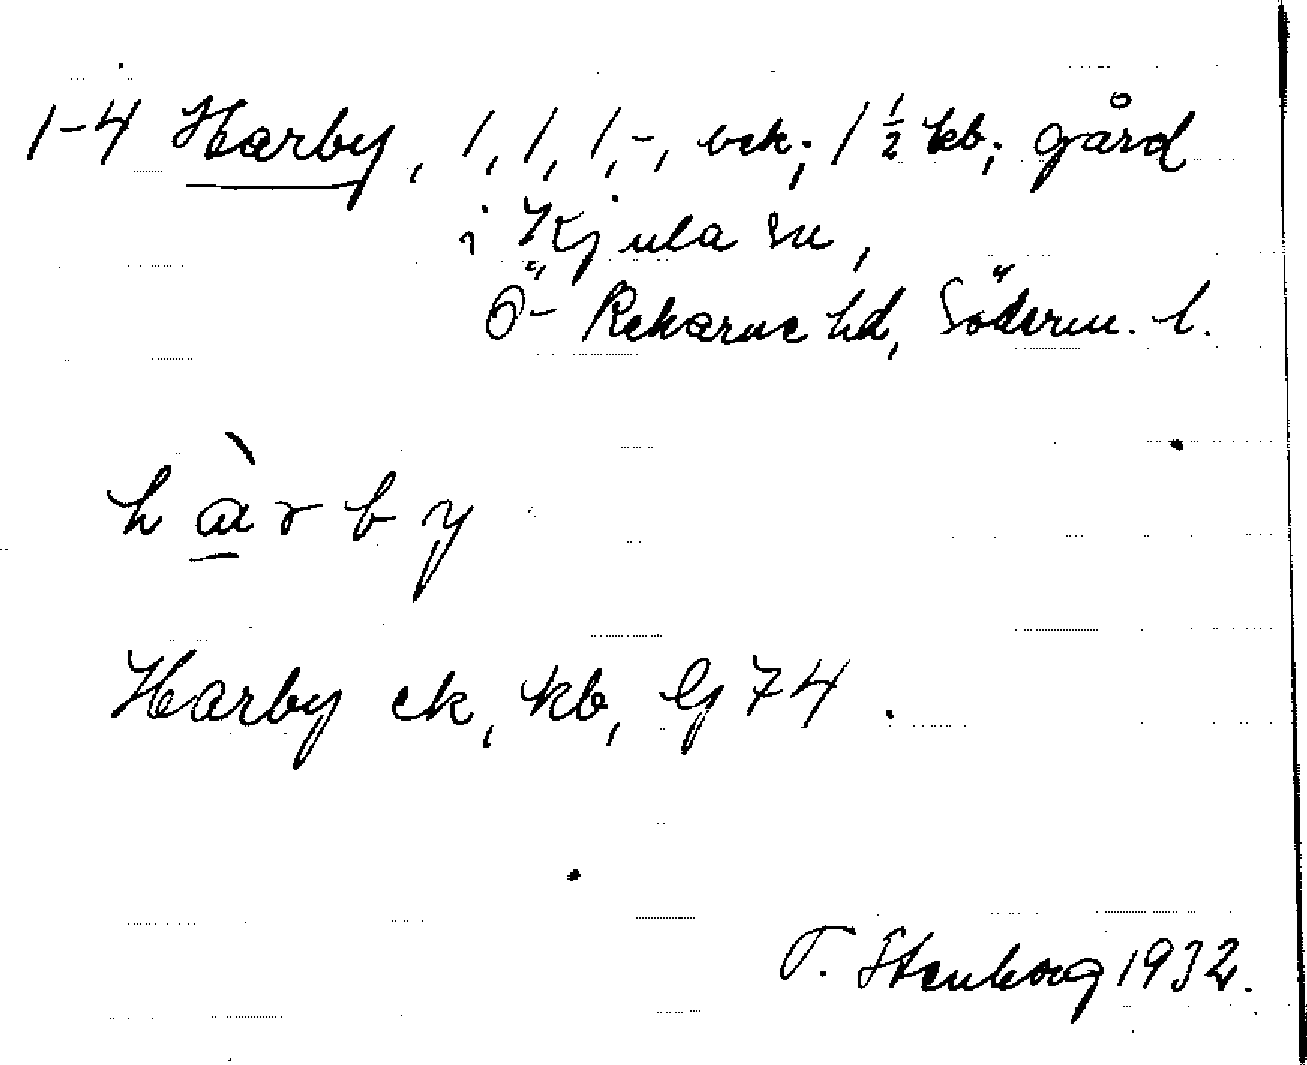 1-4 Harby, 1, 1, 1, -, eck; 1 ½ kb; gård
i Kjula sn,
Ö- Rekarne hd, Söderm. l.
hàrby
Harby ek, kb, Gj 74.
T. Stenborg 1932.